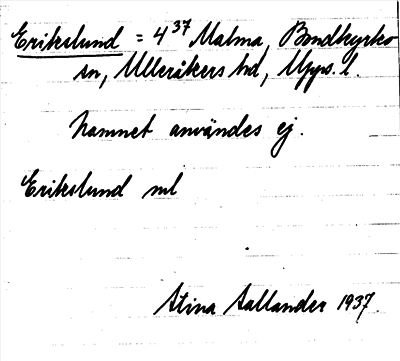 Erikslund = 4³⁷ Malma, Bondkyrko
sn, Ulleråkers hd, Upps. l.
Namnet användes ej.
Erikslund ml
Stina Sallander 1937.